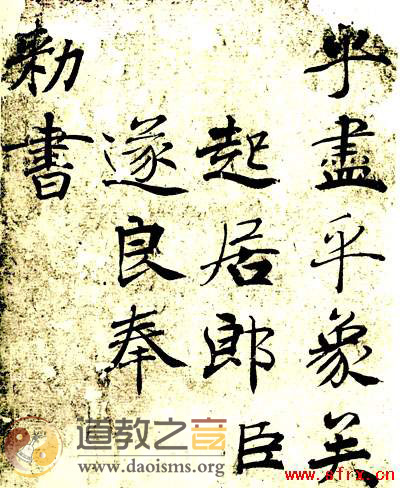 乎盡乎象矣
起居郎臣
遂良奉
勑書
道教之音
www.daoisms.org
www.sfrx.cn